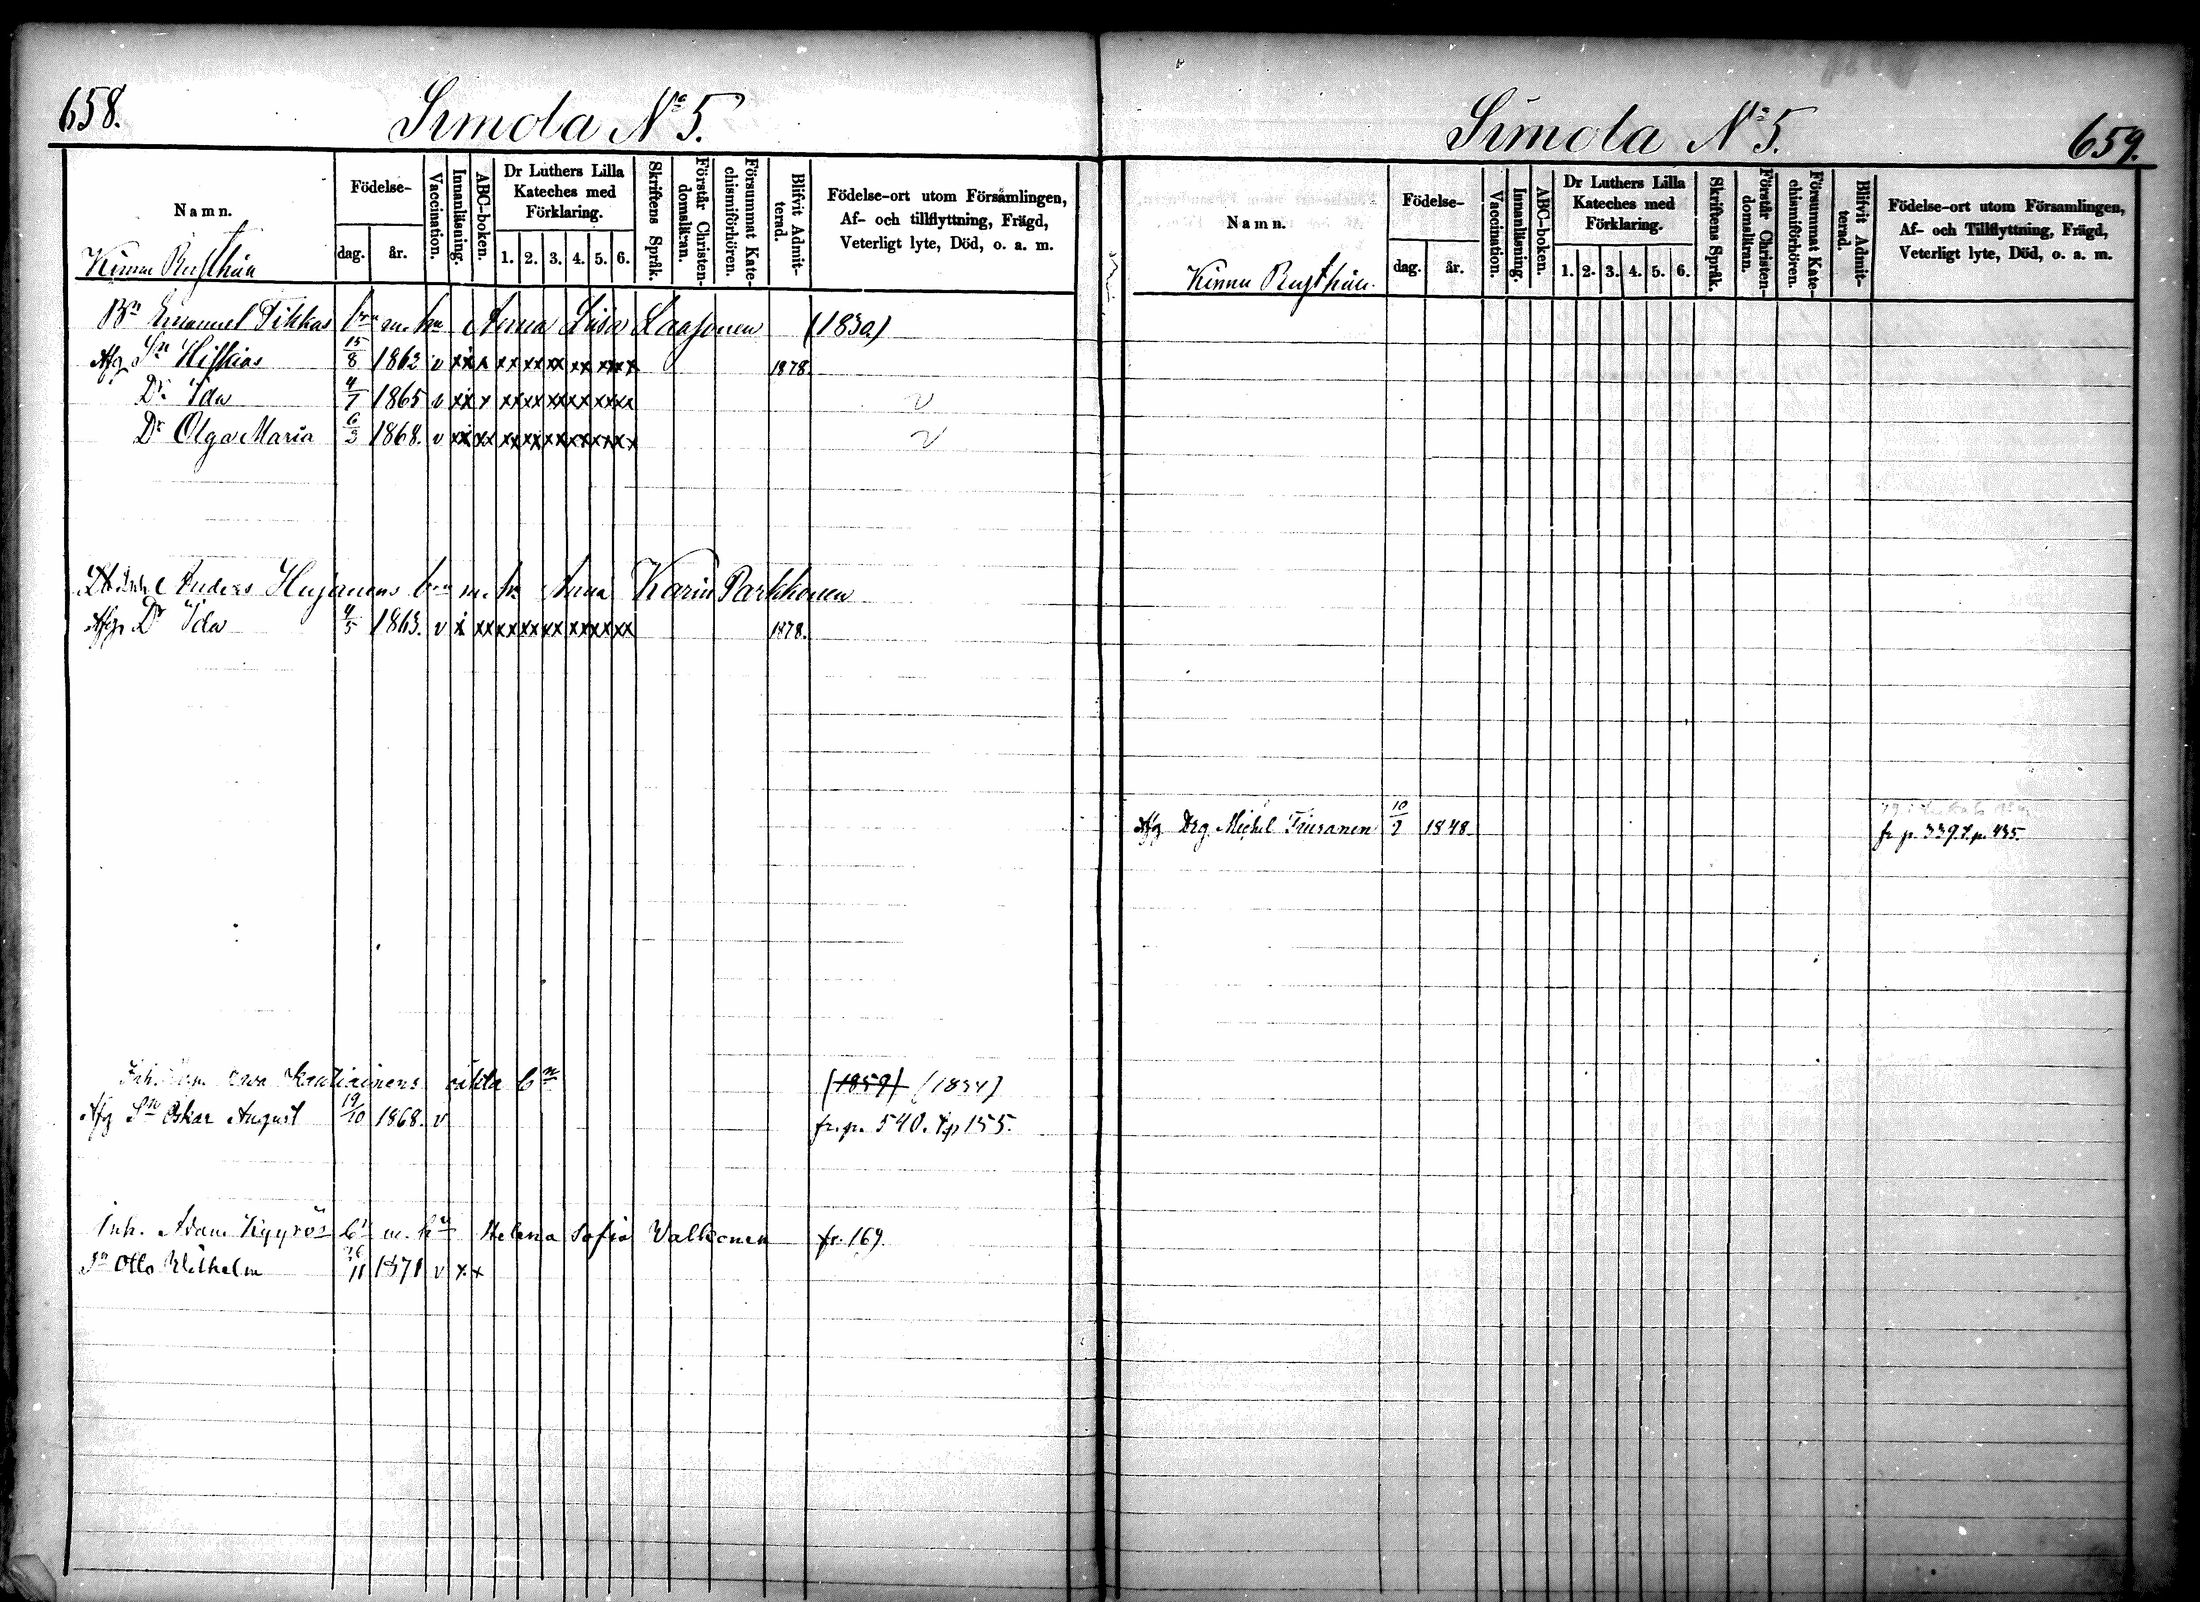 658.
Simola No 5.
Namn.
Födelse-
dag.
år.
Vaccination.
Innanläsning.
ABC-boken.
Dr Luthers Lilla
Kateches med
Förklaring.
1. 2. 3. 4. 5. 6.
Skriftens Språk.
Förstår Christen-
domsläran.
Försummat Kate-
chismiförhören.
Blifvit Admit-
terad.
Födelse-ort utom Församlingen,
Af- och tillflyttning, Frägd,
Veterligt lyte, Död, o. a. m.
Kinnu Rusthåll
Bn Emanuel Tikkas brn m. hu Anna Lisa Laasonen (1830)
Afg Sn Hiskias 15/8 1862 v xx x xx xx xx xx xx xx 1878.
Dr Ida 4/7 1865 v xx x xx xx xx xx xx xx v
Dr Olga Maria 6/3 1868. v xx xx xx xx xx xx xx xx v
Anders Hujanens brn m. hu Anna Karin Parkkonen
Afg. Dr Ida 4/5 1863. v x xx xx xx xx xx xx xx 1878.
Inh. Kautiainens oäkta bn (1859) (1834)
Afg Sn Oskar August 19/10 1868. v fr. p. 540. t p 155.
Inh. Adam Kyyrös bn m. hu Helena Sofia Valkonen fr. 169.
Sn Otto Wilhelm 26/11 1871 v x x
Simola No 5.
659.
Namn.
Födelse-
dag.
år.
Vaccination.
Innanläsning.
ABC-boken.
Dr Luthers Lilla
Kateches med
Förklaring.
1. 2. 3. 4. 5. 6.
Skriftens Språk.
Förstår Christen-
domsläran.
Försummat Kate-
chismiförhören.
Blifvit Admit-
terad.
Födelse-ort utom Församlingen,
Af- och Tillflyttning, Frägd,
Veterligt lyte, Död, o. a. m.
Kinnu Rusthåll.
Afg Drg. Michel Trusanen 10/9 1848. fr p. 339. t. p. 435.